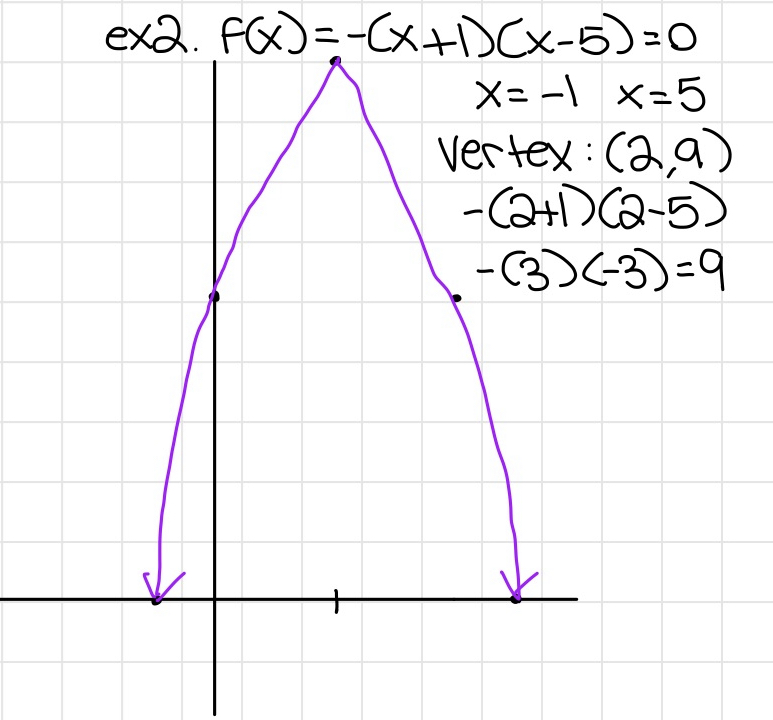 ex2. f(x)=-(x+1)(x-5)=0
x=-1 x=5
Vertex: (2,9)
-(2+1)(2-5)
-(3)(-3)=9